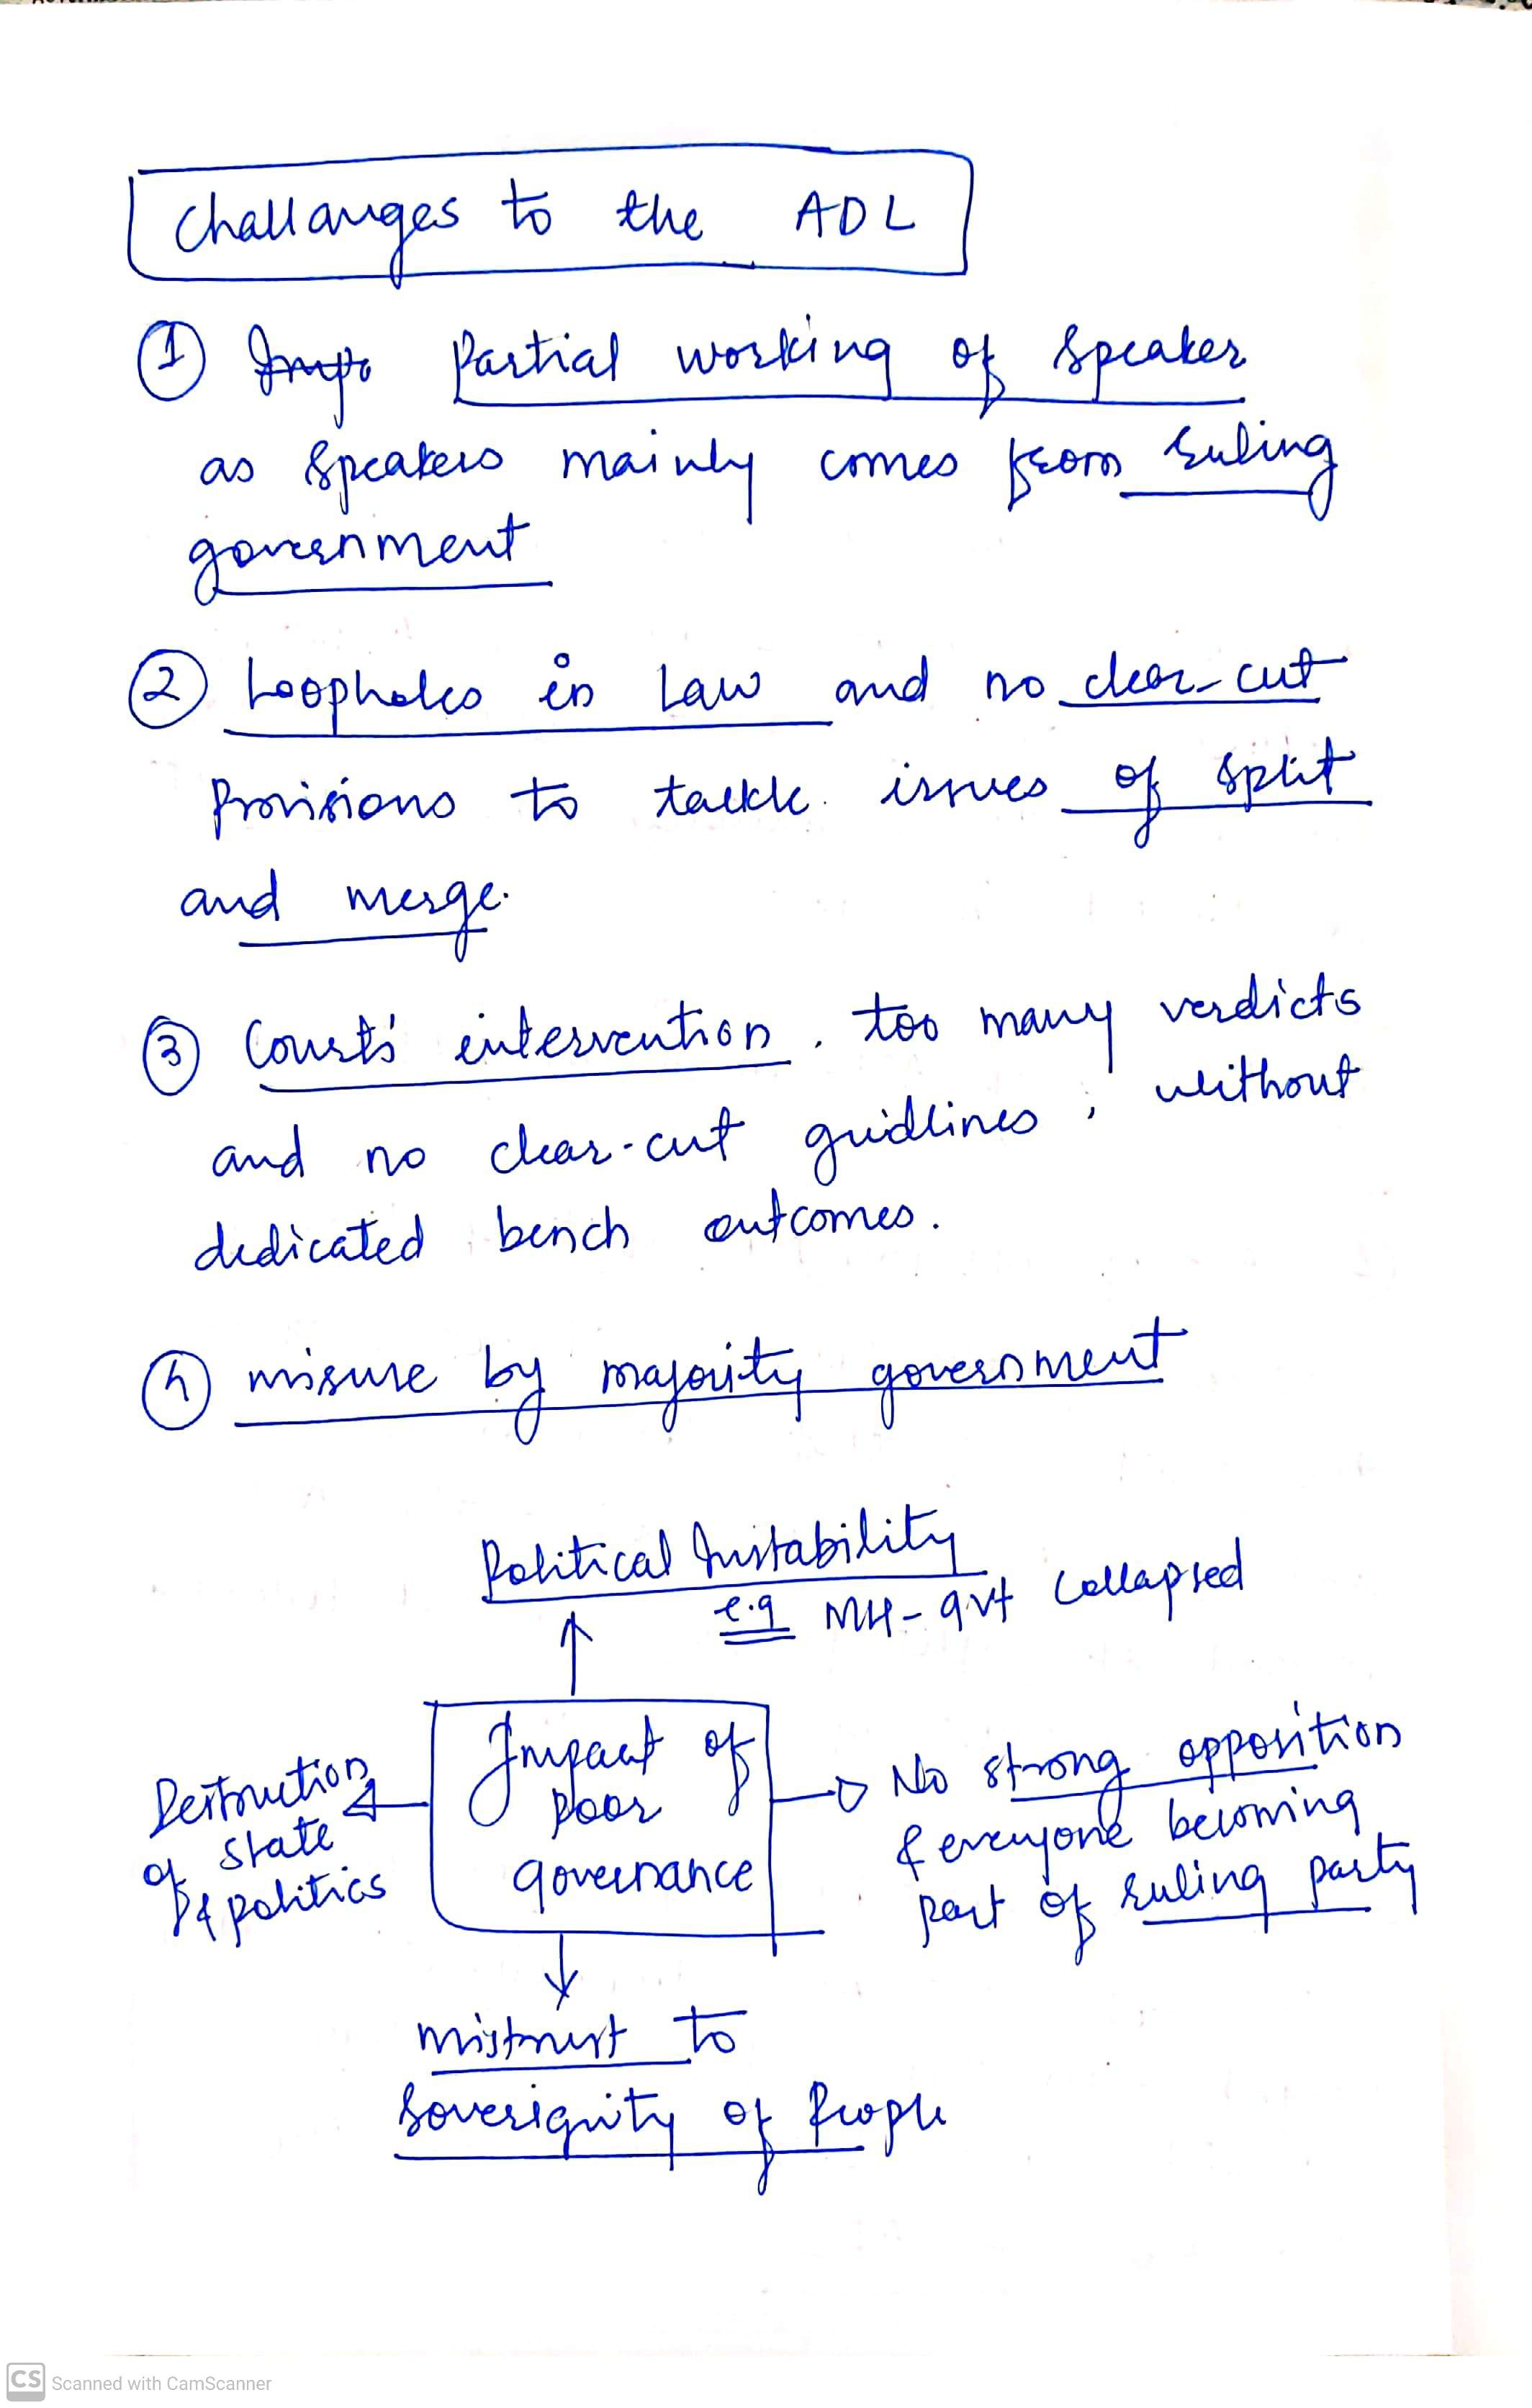 Challanges to the ADL
① Impo Partial working of Speaker
as Speakers mainly comes from ruling
government
② Loopholes in Law and no clear-cut
Provisions to tackle issues of split
and merge.
③ Courts' intervention. too many verdicts
and no clear-cut guidlines, without
dedicated bench outcomes.
④ misuse by majority government
Political Instability
e.g MH-gvt collapsed
Impact of
poor
governance
Destruction
of state
& politics
No strong opposition
& everyone becoming
part of ruling party
mistrust to
Soverignity of People
CS Scanned with CamScanner